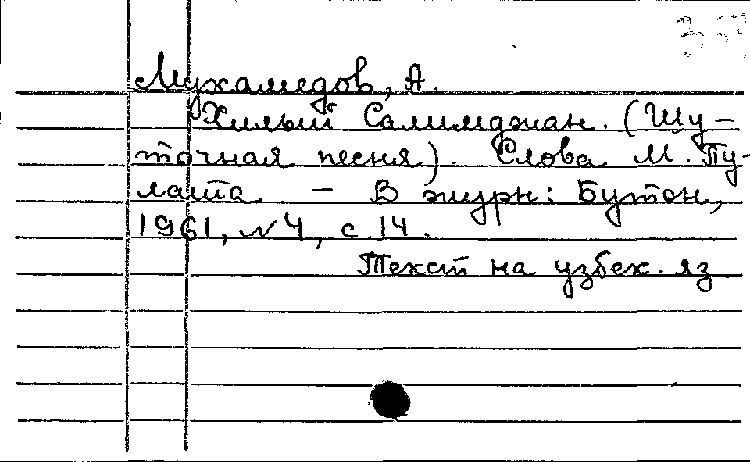 Мухамедов, А.
Хилый Салимджан. (Шу-
точная песня). Слова М. Пу-
лата – В журн: Бутон,
1961, N 4, с 14.
Текст на узбек. яз